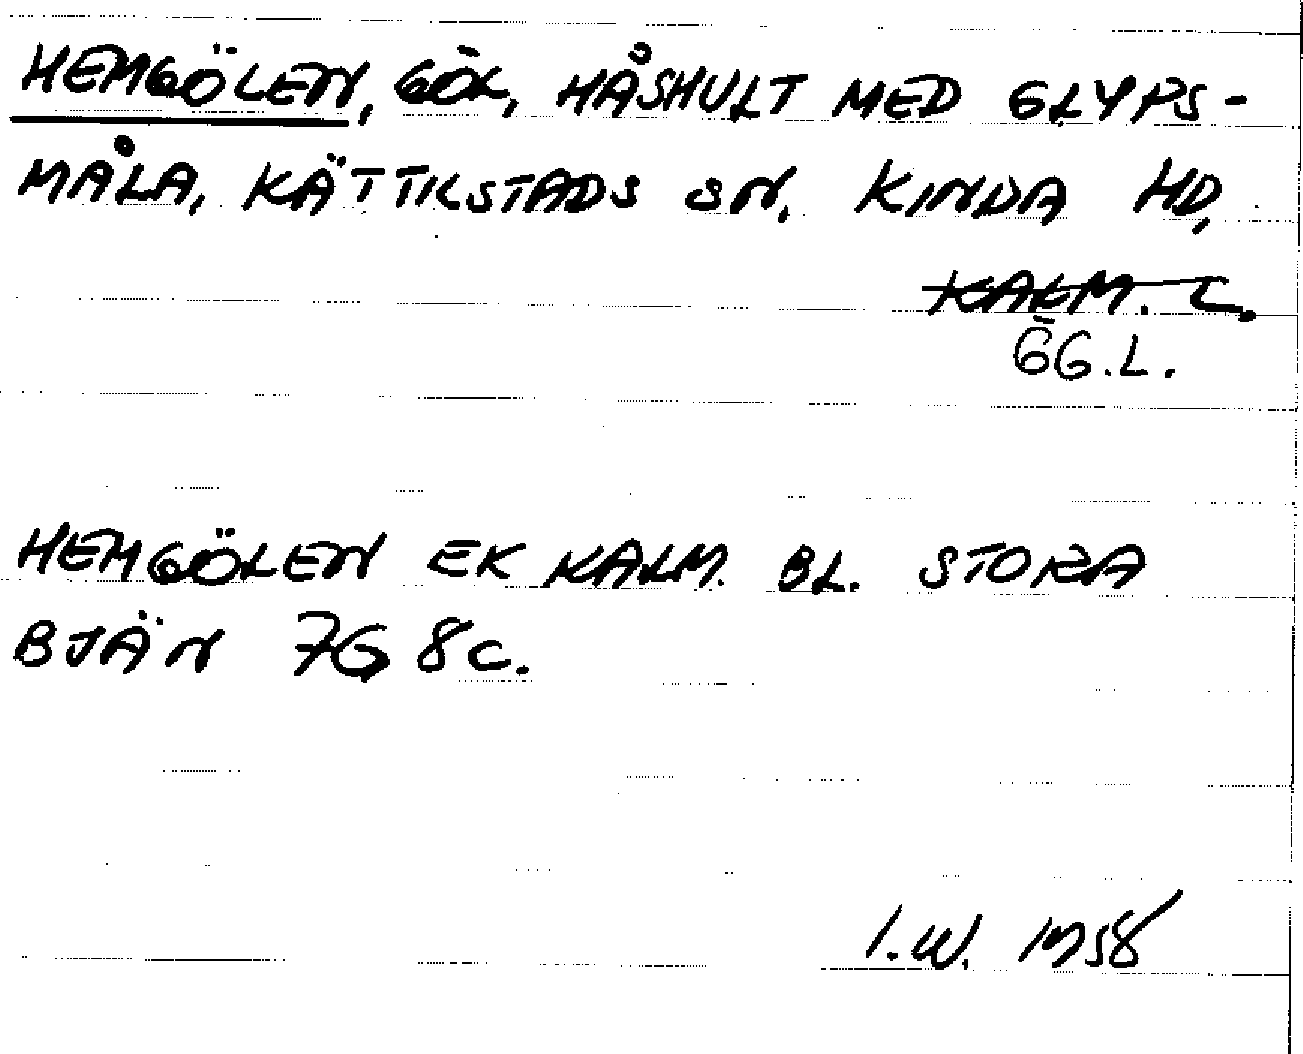 HEMGÖLEN, GÖL, HÅSHULT MED GLYPS-
MÅLA, KÄTTILSTADS SN, KINDA HD,
KALM. L.
ÖG.L.
HEMGÖLEN EK KALM. BL. STORA
BJÄN 7G 8c.
I.W. 1958